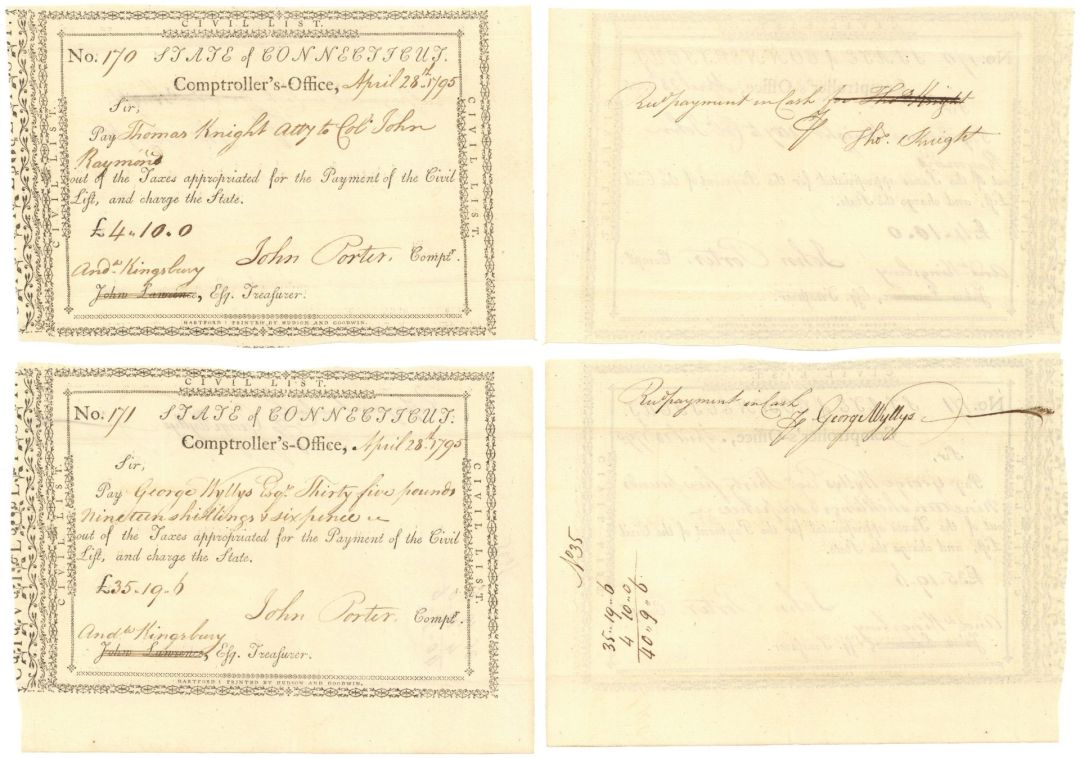 CIVIL LIST.
No. 170 STATE of CONNECTICUT.
Comptroller's-Office, April 28th. 1795
Sir,
Pay Thomas Knight Atty to Colo. John
Raymond
out of the Taxes appropriated for the Payment of the Civil
List, and charge the State.
£4.. 10.. 0
John Porter. Comptr.
Andw Kingsbury
John Lawrence, Esq. Treasurer.
HARTFORD: PRINTED BY HUDSON AND GOODWIN.
CIVIL LIST.
CIVIL LIST.
Recd payment in Cash for Thos Knight
Thos. Knight
CIVIL LIST.
No. 171 STATE of CONNECTICUT.
Comptroller's-Office, April 28th. 1795
Sir,
Pay George Wyllys Esqr. Thirty five pounds
Nineteen shillings & six pence
out of the Taxes appropriated for the Payment of the Civil
List, and charge the State.
£35..19..6
John Porter. Comptr.
Andw Kingsbury
John Lawrence, Esq. Treasurer.
HARTFORD: PRINTED BY HUDSON AND GOODWIN.
CIVIL LIST.
CIVIL LIST.
Recd payment in Cash
George Wyllys
No 35
35..19..6
4 10..0
40..9..6